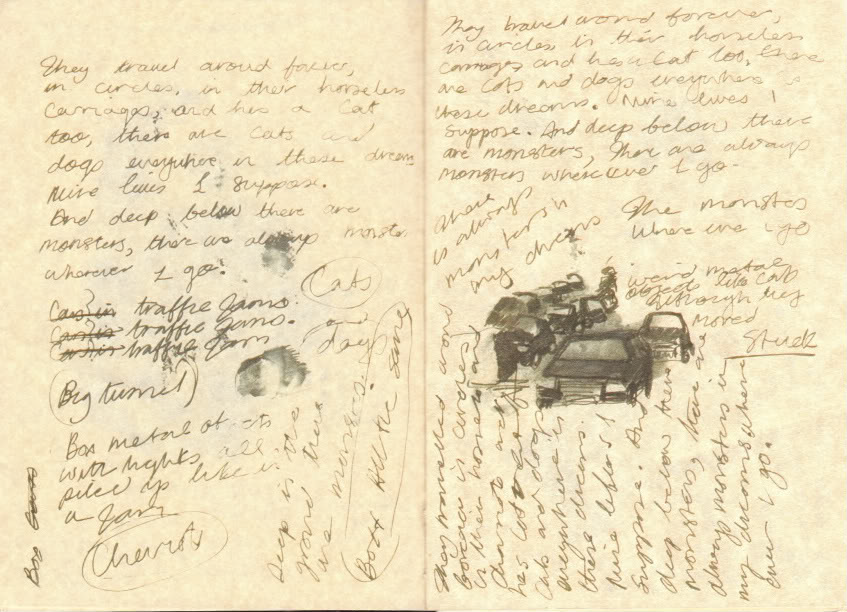 They travel around forever,
in circles, in their horseless
carriages, and has a cat
too, there are cats and
dogs everywhere in these dream
Nine lives I suppose.
And deep below there are
monsters, there are always monster
wherever I go.
Cats
in traffic Jams.
in traffic Jams.
traffic Jam
and
dogs
Big tunnel
Box metal
with lights all
piled up like in
a Jam
Chariots
Box
deep in the
there
are monsters
They travel around forever,
in circles in their horseless
carriages and has a Cat too, there
are Cats and dogs everywhere in
these dreams. Nine lives I
suppose. And deep below there
are monsters, there are always
monsters wherever I go.
there
is always
monsters in
my dreams
The monsters
where ever I go
weird metal
objects like Cats
although they
moved
Stuck
They travelled around
forever in circles
in their
has
Cats and dogs
everywhere in
these dreams.
Nine
suppose. And
deep below there
monsters, there are
always monsters in
my dreams where
ever I go.